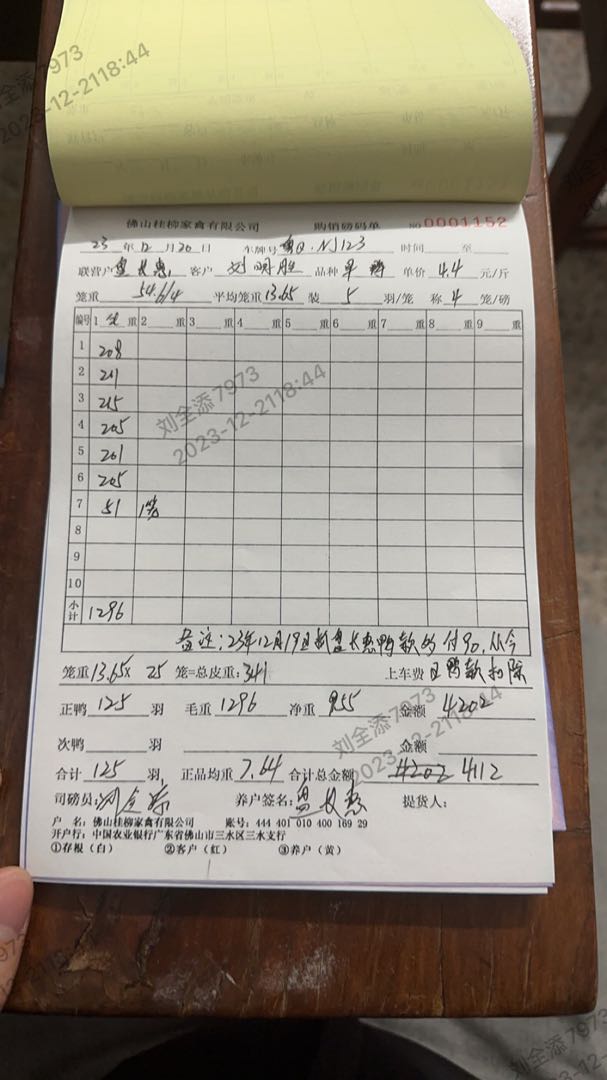 刘全添7973
2023-12-2118:44
佛山桂柳家禽有限公司 购销磅码单 NO 0001152
23 年 12 月 20 日 车牌号 NJ123 时间 至
联营户 盘长惠 客户 刘明胜 品种 单价 4.4 元/斤
笼重 54.6/4 平均笼重 13.65 装 5 羽/笼 称 4 笼/磅
编号 1 重 2 重 3 重 4 重 5 重 6 重 7 重 8 重 9 重
1 208
2 211
3 215
4 205
5 201
6 205
7 51 1笼
8
9
10
小计 1296
刘全添7973
2023-12-2118:44
备注:23年12月19日 盘长惠鸭款 付90,从今
日鸭款扣除
笼重 13.65 x 25 笼=总皮重: 341 上车费
正鸭 125 羽 毛重 1296 净重 955 金额 4202
次鸭 羽 金额
合计 125 羽, 正品均重 7.64 合计总金额 4202 4112
刘全添7973
2023-12-2118:44
司磅员: 刘全添 养户签名: 盘长惠 提货人:
户 名: 佛山桂柳家禽有限公司 账号: 444 401 010 400 169 29
开户行: 中国农业银行广东省佛山市三水区三水支行
①存根(白) ②客户(红) ③养户(黄)
7973
2-2118:44
刘全添7973
2023-12-2118:44